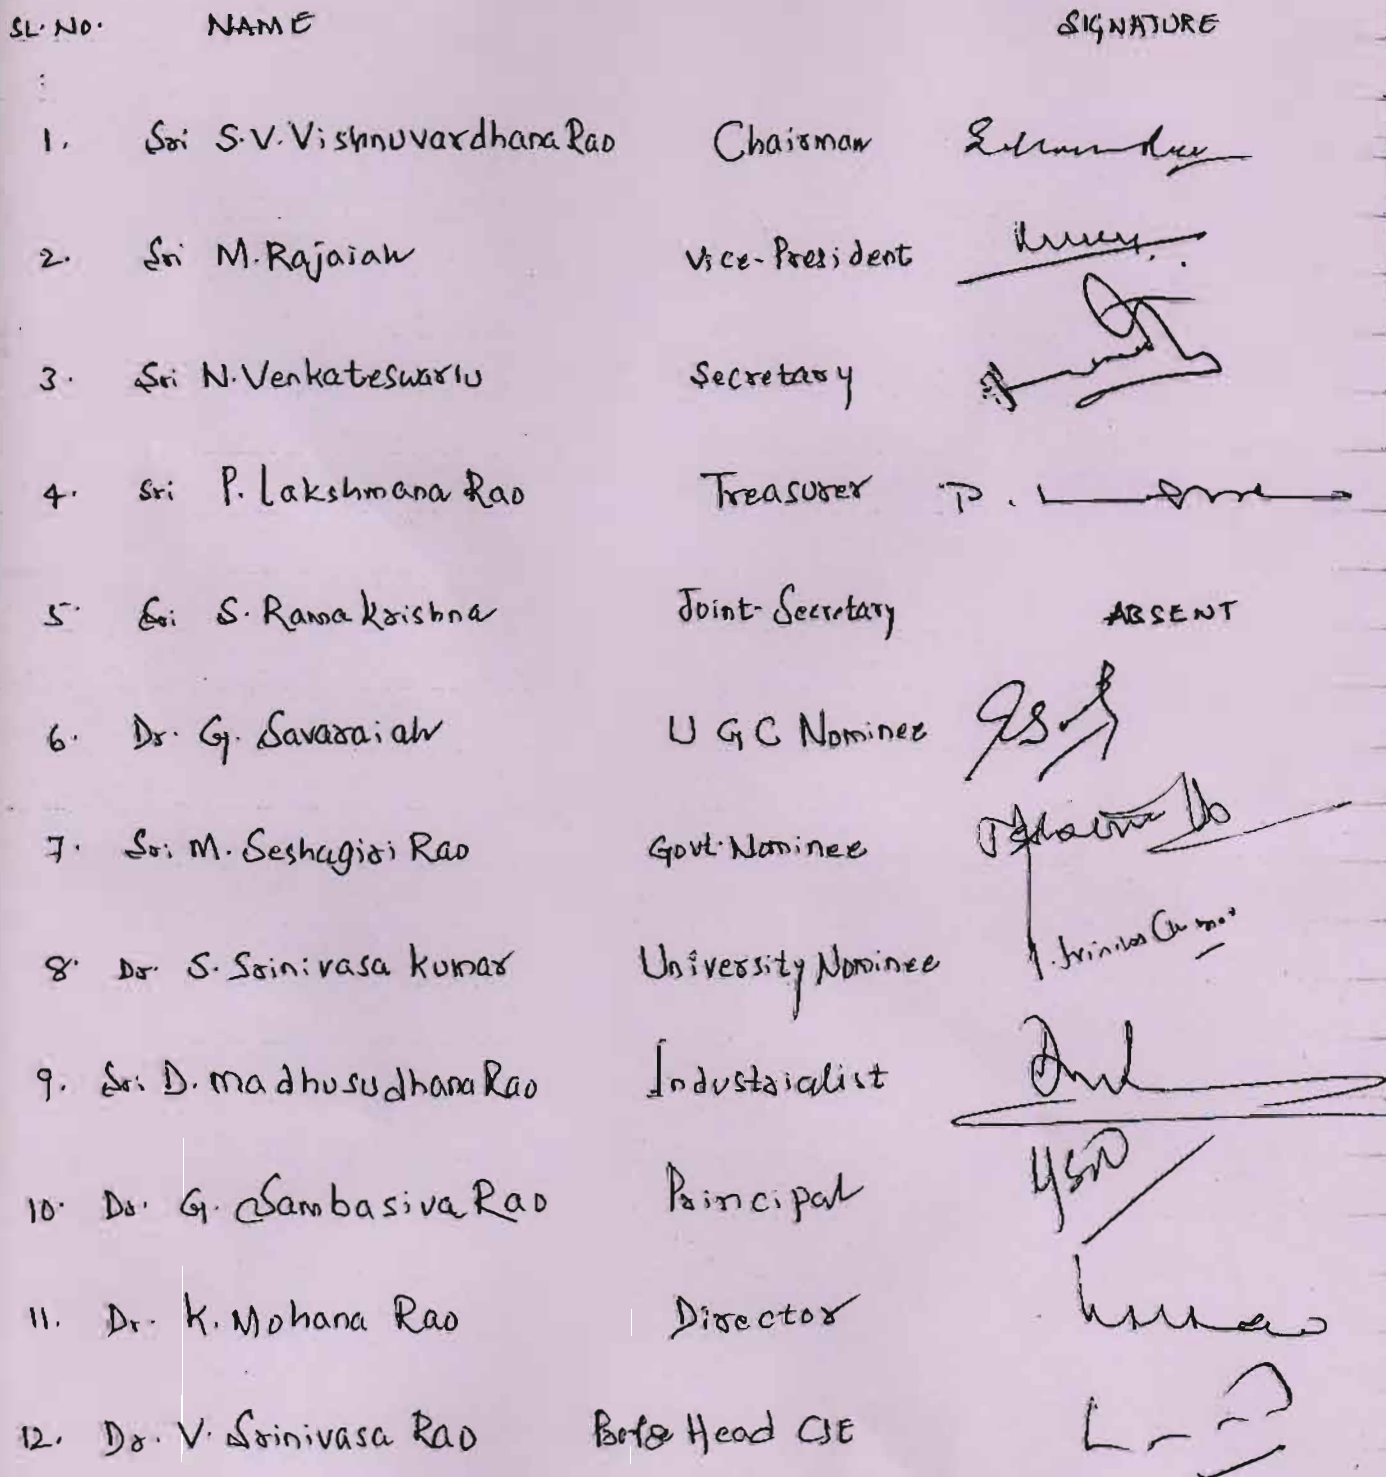 SL. NO. NAME SIGNATURE
1. Sri S.V. Vishnuvardhana Rao Chairman
2. Sri M. Rajaiah Vice-President
3. Sri N. Venkateswarlu Secretary
4. Sri P. Lakshmana Rao Treasurer P.
5. Sri S. Rama Krishna Joint-Secretary ABSENT
6. Dr. G. Savaraiah U G C Nominee
7. Sri M. Seshagiri Rao Govt. Nominee
8. Dr. S. Srinivasa Kumar University Nominee
9. Sri D. Madhusudhana Rao Industrialist
10. Dr. G. Sambasiva Rao Principal
11. Dr. K. Mohana Rao Director
12. Dr. V. Srinivasa Rao Head CSE